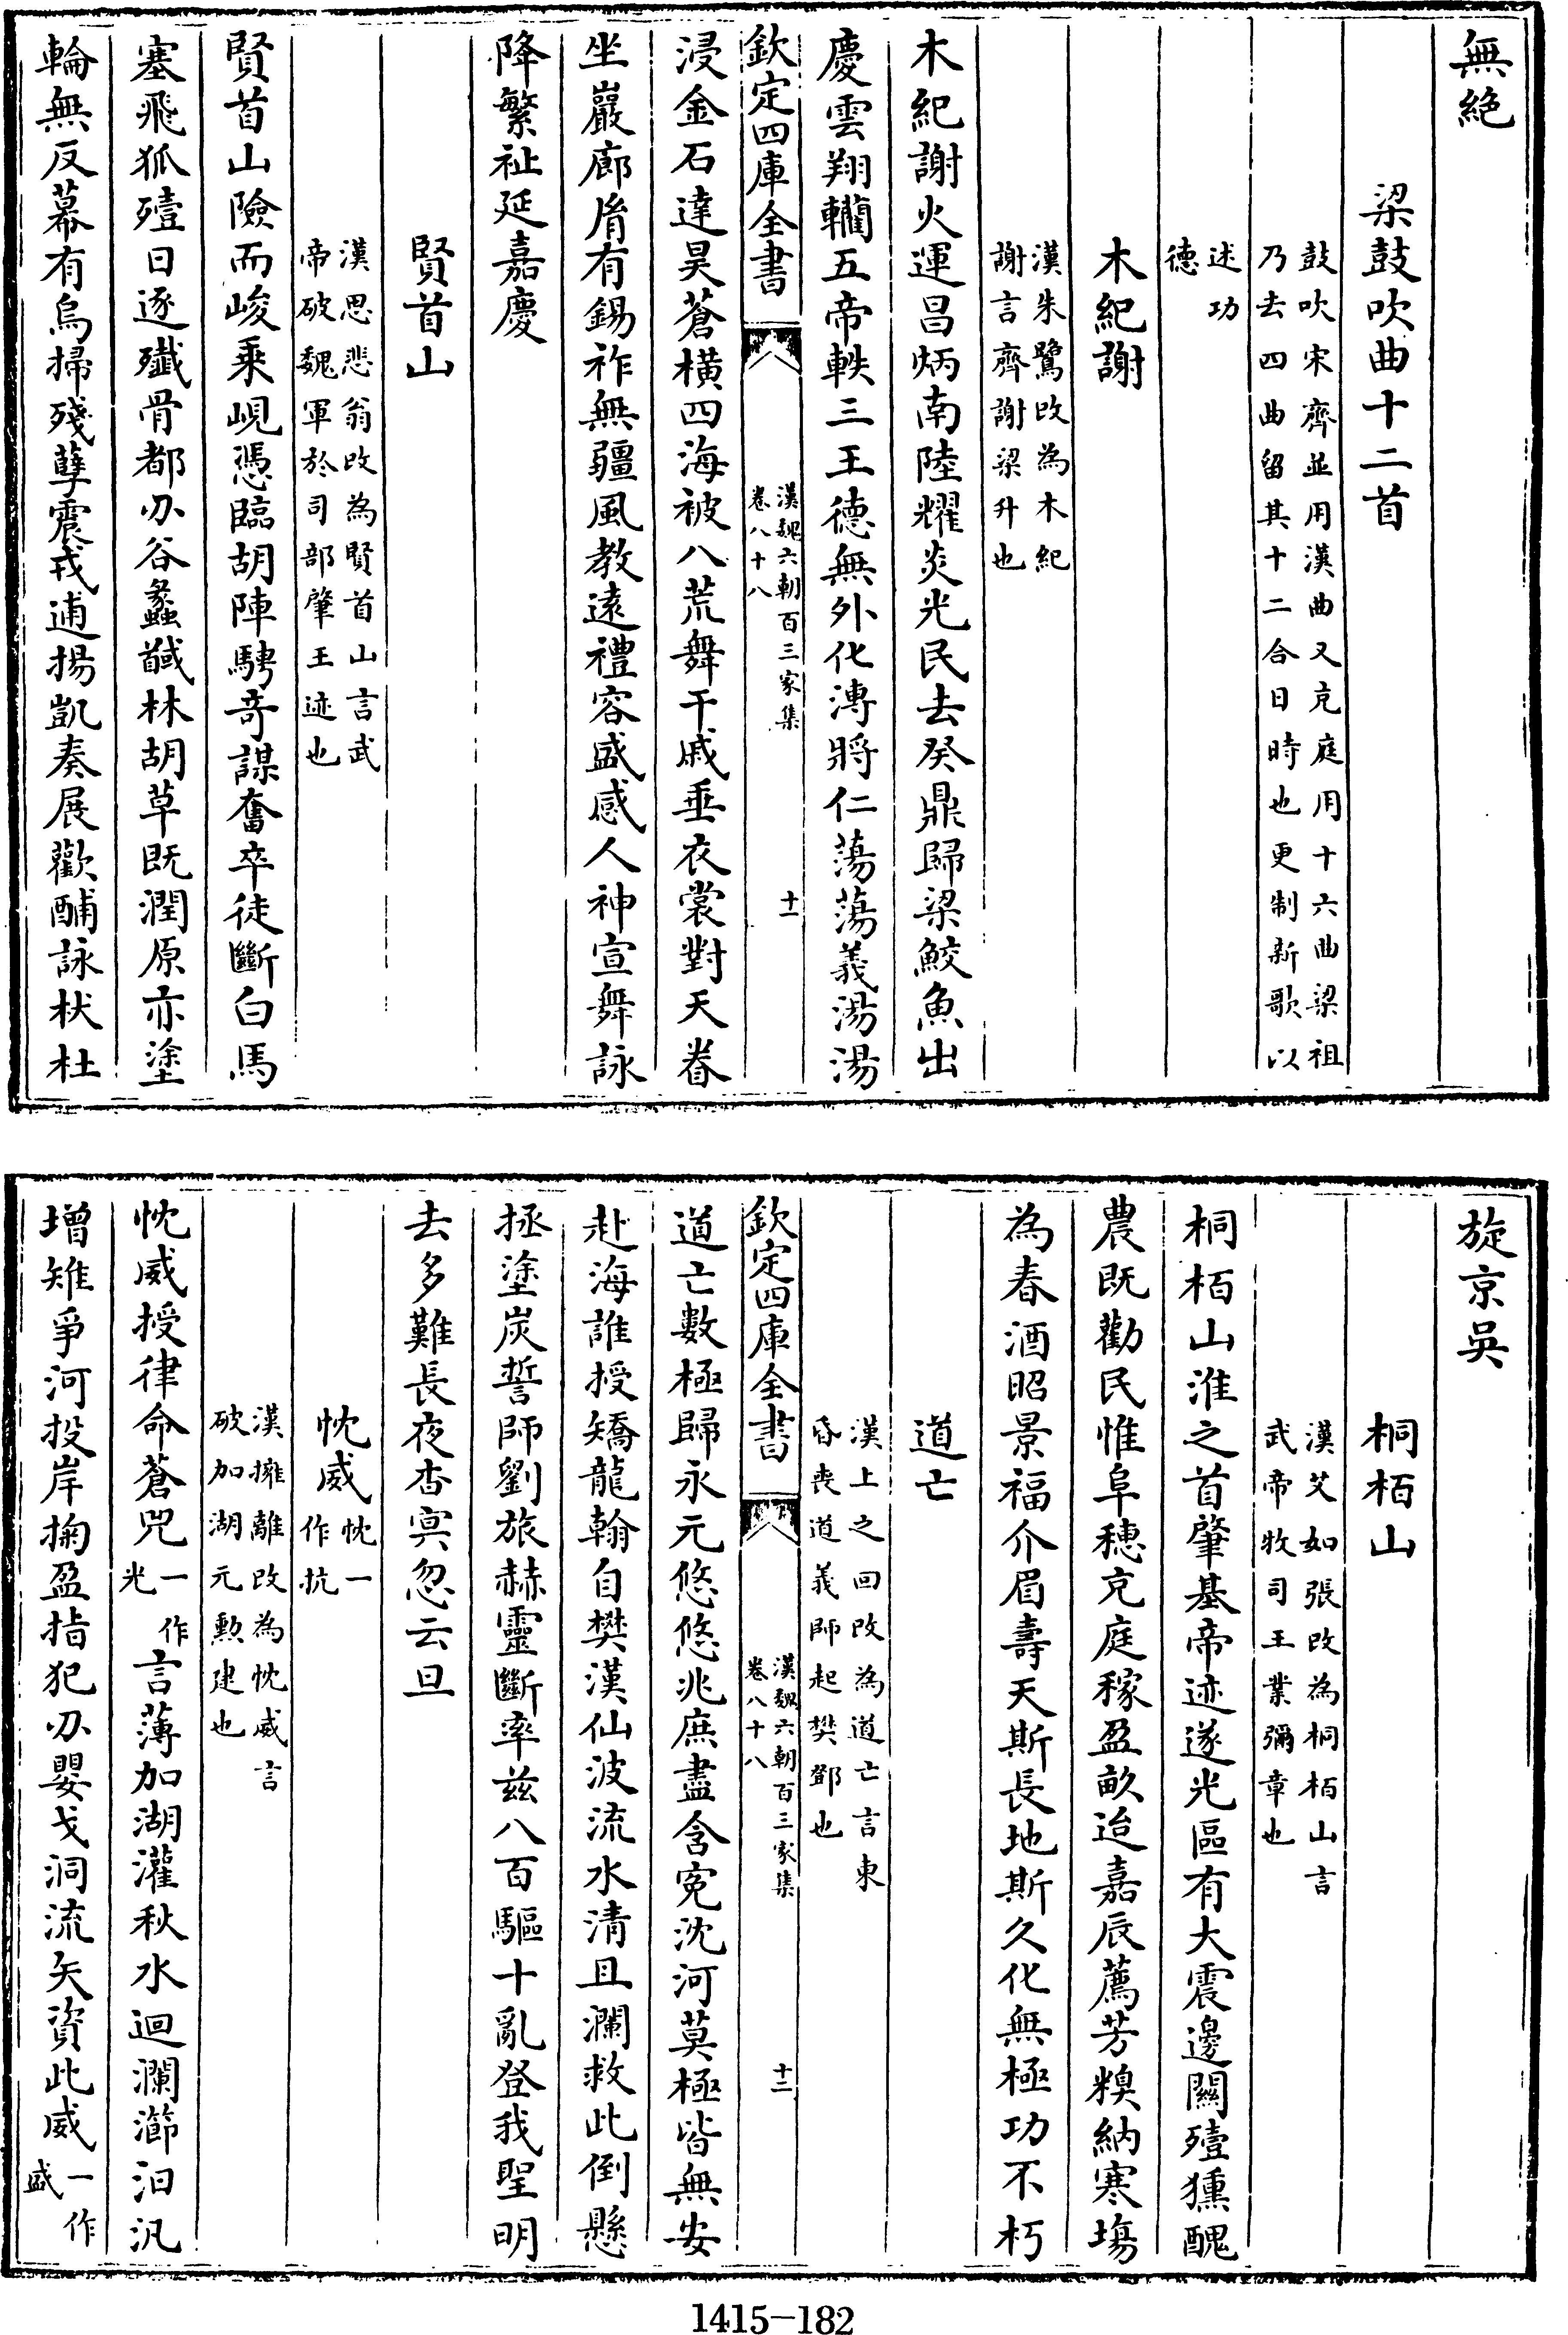 無絶
梁鼓吹曲十二首
鼓吹宋齊並用漢曲又充庭用十六曲梁祖
乃去四曲留其十二合日時也更制新歌以
述功
德
木紀謝
漢朱鷺改為木紀
謝言齊謝梁升也
木紀謝火運昌炳南陸耀炎光民去癸鼎歸梁鮫魚出
慶雲翔韊五帝軼三王德無外化溥將仁蕩蕩義湯湯
欽定四庫全書
漢魏六朝百三家集
卷八十八
十一
浸金石達昊蒼橫四海被八荒舞干戚垂衣裳對天眷
坐巖廊㣧有錫祚無疆風教遠禮容盛感人神宣舞詠
降繁祉延嘉慶
賢首山
漢思悲翁改為賢首山言武
帝破魏軍於司部肇王迹也
賢首山險而峻乘峴憑臨胡陣騁奇謀奮卒徒斷白馬
塞飛狐殪日逐殲骨都刅谷蠡馘林胡草既潤原亦塗
輪無反幕有烏掃殘孽震戎逋揚凱奏展歡酺詠杕杜
旋京吳
桐栢山
漢艾如張改為桐栢山言
武帝牧司王業彌章也
桐栢山淮之首肇基帝迹遂光區有大震邊關殪獯醜
農既勸民惟阜穗充庭稼盈畝迨嘉辰薦芳糗納寒場
為春酒昭景福介眉壽天斯長地斯久化無極功不朽
道亡
漢上之回改為道亡言東
昏喪道義師起樊鄧也
欽定四庫全書
漢魏六朝百三家集
卷八十八
十二
道亡數極歸永元悠悠兆庶盡含寃沈河莫極皆無安
赴海誰授矯龍翰自樊漢仙波流水清且瀾救此倒懸
拯塗炭誓師劉旅赫靈斷率兹八百驅十亂登我聖明
去多難長夜杳冥忽云旦
忱威忱一
作抗
漢擁離改為忱威言
破加湖元勲建也
忱威授律命蒼兕一作
光言薄加湖灌秋水迴瀾瀄汩汎
增雉爭河投岸掬盈指犯刅嬰戈洞流矢資此威一作
盛
1415-182